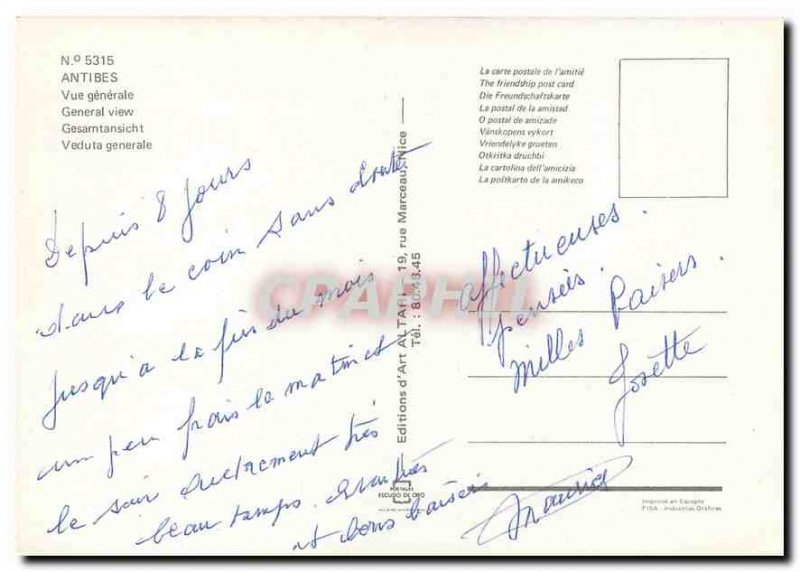 N.º 5315
ANTIBES
Vue générale
General view
Gesamtansicht
Veduta generale
Depuis 8 jours
dans le coin sans doute
jusqu'à la fin du mois
un peu frais le matin et
le soir autrement très
beau temps.
et bons baisers
Editions d'Art ALTARI, 19, rue Marceau, Nice
Tél. : 80.43.45
POSTALES
ESCUDO DE ORO
La carte postale de l'amitié
The friendship post card
Die Freundschaftskarte
La postal de la amistad
O postal de amizade
Vänskapens vykort
Vriendelyke groeten
Otkritka druchbi
La cartolina dell'amicizia
La poŝtkarto de la amikeco
affectueuses
pensées.
milles Baisers.
Josette
Maurice
Imprimé en Espagne
FISA - Industrias Gráficas
CPAPHIL